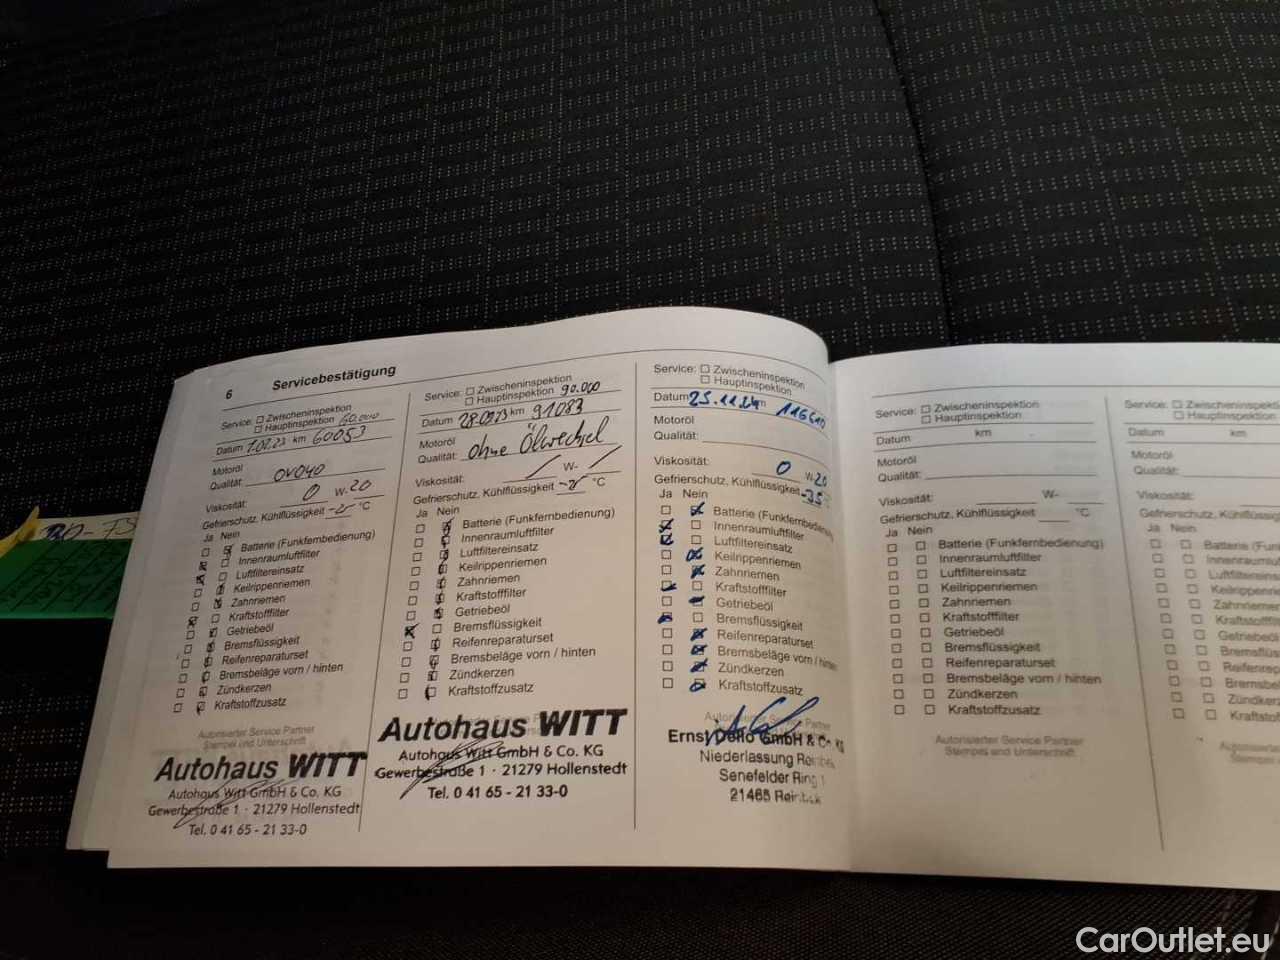 6 Servicebestätigung
Service: Zwischeninspektion
Hauptinspektion 60.000
Datum km 60053
Motoröl
Qualität: OV040
Viskosität: 0 W-20
Gefrierschutz, Kühlflüssigkeit °C
Ja Nein
Batterie (Funkfernbedienung)
Innenraumluftfilter
Luftfiltereinsatz
Keilrippenriemen
Zahnriemen
Kraftstofffilter
Getriebeöl
Bremsflüssigkeit
Reifenreparaturset
Bremsbeläge vorn / hinten
Zündkerzen
Kraftstoffzusatz
Autorisierter Service Partner
Stempel und Unterschrift
Autohaus WITT
Autohaus Witt GmbH & Co. KG
Gewerbestraße 1 · 21279 Hollenstedt
Tel. 0 41 65 - 21 33-0
Service: Zwischeninspektion
Hauptinspektion 90.000
Datum km 91083
Motoröl
Qualität: ohne Ölwechsel
Viskosität: W-
Gefrierschutz, Kühlflüssigkeit °C
Ja Nein
Batterie (Funkfernbedienung)
Innenraumluftfilter
Luftfiltereinsatz
Keilrippenriemen
Zahnriemen
Kraftstofffilter
Getriebeöl
Bremsflüssigkeit
Reifenreparaturset
Bremsbeläge vorn / hinten
Zündkerzen
Kraftstoffzusatz
Autohaus WITT
Autohaus Witt GmbH & Co. KG
Gewerbestraße 1 · 21279 Hollenstedt
Tel. 0 41 65 - 21 33-0
Service: Zwischeninspektion
Hauptinspektion
Datum 25.11.24 km 116610
Motoröl
Qualität:
Viskosität: 0 W-20
Gefrierschutz, Kühlflüssigkeit -35
Ja Nein
Batterie (Funkfernbedienung)
Innenraumluftfilter
Luftfiltereinsatz
Keilrippenriemen
Zahnriemen
Kraftstofffilter
Getriebeöl
Bremsflüssigkeit
Reifenreparaturset
Bremsbeläge vorn / hinten
Zündkerzen
Kraftstoffzusatz
Autorisierter Service Partner
Ernst Dello GmbH & Co. KG
Niederlassung Reinbek
Senefelder Ring 1
21465 Reinbek
Service: Zwischeninspektion
Hauptinspektion
Datum km
Motoröl
Qualität:
Viskosität: W-
Gefrierschutz, Kühlflüssigkeit °C
Ja Nein
Batterie (Funkfernbedienung)
Innenraumluftfilter
Luftfiltereinsatz
Keilrippenriemen
Zahnriemen
Kraftstofffilter
Getriebeöl
Bremsflüssigkeit
Reifenreparaturset
Bremsbeläge vorn / hinten
Zündkerzen
Kraftstoffzusatz
Autorisierter Service Partner
Stempel und Unterschrift
Service: Zwischeninspektion
Hauptinspektion
Datum km
Motoröl
Qualität:
Viskosität:
Gefrierschutz, Kühlflüssig
Ja Nein
Batterie (Fun
Innenraumluft
Luftfiltereins
Keilrippenrie
Zahnriemen
Kraftstofffil
Getriebeöl
Bremsflüss
Reifenrepa
Bremsbelä
Zündkerze
Kraftstoffz
CarOutlet.eu